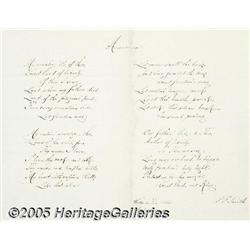 America
My country, 'tis of thee,
Sweet land of liberty
Of thee I sing;
Land where my fathers died,
Land of the pilgrims' pride,
From every mountain side
Let freedom ring.
My native country, thee,
Land of the noble free,
Thy name I love;
I love thy rocks and rills,
Thy woods and templed hills
My heart
Like that above.
Let music swell the breeze,
And ring from all the trees
Sweet freedom's song;
Let mortal tongues awake,
Let all that breathe partake,
Let rocks their silence break
The sound prolong.
Our fathers' God, to Thee,
Author of liberty,
To Thee we sing;
Long may our land be bright
With freedom's holy light,
Protect us by thy might
Great God, our King.
S. F. Smith
©2005 HeritageGalleries